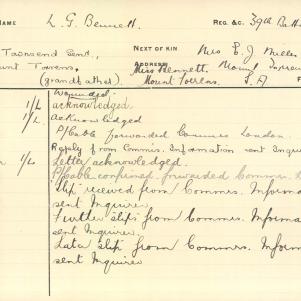 NAME L. G. Bennett. REG. &C. 39th Batt
Townsend Senr, NEXT OF KIN Mrs E. J. Miller
unt Torrens ADDRESS Miss Bennett, Mount Torrens
(grandfather) Mount Torrens S. A
Wounded.
1/L acknowledged
1/L acknowledged
P/Cable forwarded Commrs London.
Reply from Commrs. Information sent Inquirer
1/L Letter acknowledged.
P/Cable confirmed forwarded Commrs.
Slip received from Commrs. Informa
sent Inquirer
Further slip from Commrs. Informa
sent Inquirer.
Later slip from Commrs. Inform
sent Inquirer